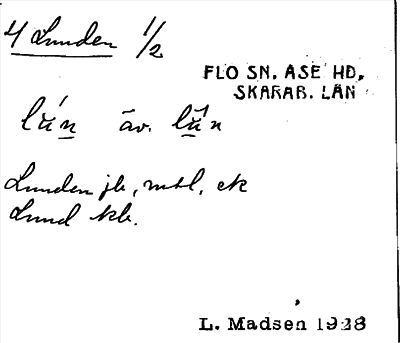 4 Lunden 1/2
FLO SN. ÅSE HD,
SKARAB. LÄN
lún äv. lùn
Lunden jb, mtl, ek
Lund kb.
L. Madsen 1928